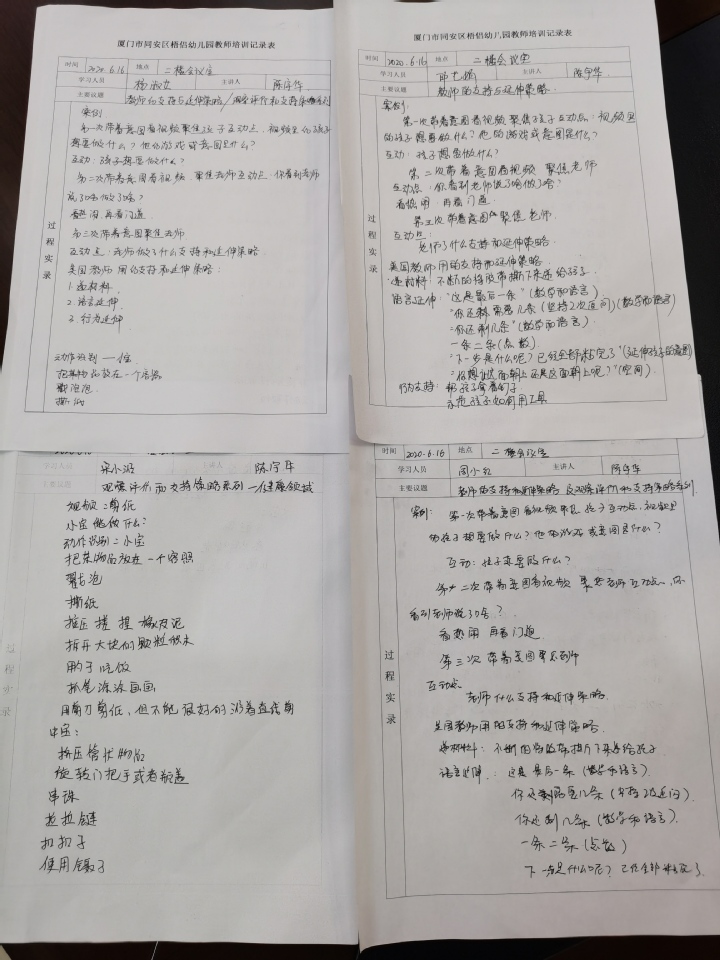 厦门市同安区梧侣幼儿园教师培训记录表
时间 2020.6.16 地点 二楼会议室
学习人员 主讲人 陈宇华
主要议题 教师的支持与延伸策略/观察评价和支持策略系列
过程实录
案例
第一次带着意图看视频聚焦孩子互动点,视频里的孩子
想要做什么?他的游戏或意图是什么?
互动:孩子想要做什么?
第二次带着意图看视频,聚焦老师互动点,你看到老师
说了啥做了啥?
看热闹,再看门道
第三次带着意图聚焦老师
互动点:老师做了什么支持和延伸策略
美国教师用的支持和延伸策略:
1.递材料
2.语言延伸
3.行为延伸
动作识别——小宝
把某物品放在一个容器
戳泡泡
撕纸
厦门市同安区梧侣幼儿园教师培训记录表
时间 2020.6.16 地点 二楼会议室
学习人员 主讲人 陈宇华
主要议题 教师的支持与延伸策略
过程实录
案例:
第一次带着意图看视频,聚焦孩子互动点:视频里
的孩子想要做什么?他的游戏或意图是什么?
互动:孩子想要做什么?
第二次带着意图看视频 聚焦老师
互动点:你看到老师说了啥做了啥?
看热闹,再看门道
第三次带着意图 聚焦老师.
互动点:
老师了什么支持和延伸策略.
美国教师用的支持和延伸策略.
递材料:不断的将胶带撕下来递给孩子.
语言延伸:"这是最后一条"(数学和语言)
"你还剩需要几条(坚持2次追问)(数学和语言)
"你还剩几条"(数学和语言)
一条二条(点数)
"下一步是什么呢?已经全部粘完了"(延伸孩子的意图)
"你想让这面朝上还是这面朝上呢?"(空间).
行为支持:帮孩子拿着钉子
示范孩子如何用工具
2020.6.16
学习人员 宋小 陈宇华
观察评价和支持策略系列一健康领域
过程实录
视频:剪纸
小宝能做什么?
动作识别:小宝
把某物品放在一个容器
戳泡
撕纸
按压 搓 捏 橡皮泥
拆开大块的颗粒积木
用勺子吃饭
抓笔涂涂画画
用剪刀剪纸,但不能很好的沿着直线剪
中宝:
挤压管状物品
旋转门把手或者瓶盖
串珠
拉拉链
扣扣子
使用镊子
时间 2020.6.16 地点 二楼会议室
学习人员 周小红 主讲人 陈宇华
主要议题 教师的支持和延伸策略及观察评价和支持策略系列.
过程实录
案例: 第一次带着意图看视频聚焦孩子互动点,视频里
的孩子想要做什么?他的游戏或意图是什么?
互动:孩子想要做什么?
第二次带着意图看视频 聚焦老师互动点,你
看到老师说了啥?
看热闹 再看门道
第三次带着意图聚焦到师
互动点
老师什么支持和延伸策略.
美国教师用的支持和延伸策略
递材料:不断的将胶带撕下来递给孩子
语言延伸:这是最后一条(数学和语言)
你还剩需要几条(坚持2次追问)
你还剩几条(数学和语言)
一条二条(点数)
下一步是什么呢?已经全部粘完了